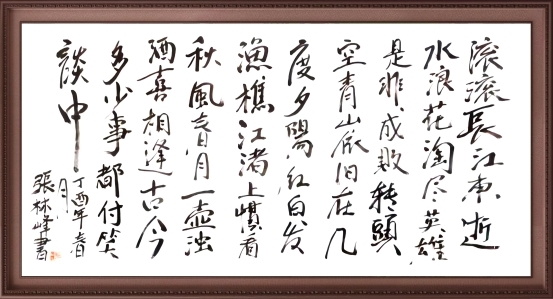 滚滚長江东逝
水浪花淘尽英雄
是非成败转頭
空青山依旧在几
度夕陽红白发
漁樵江渚上慣看
秋風春月一壶浊
酒喜相逢古今
多少事都付笑
談中
丁酉年春
月
張林峰書